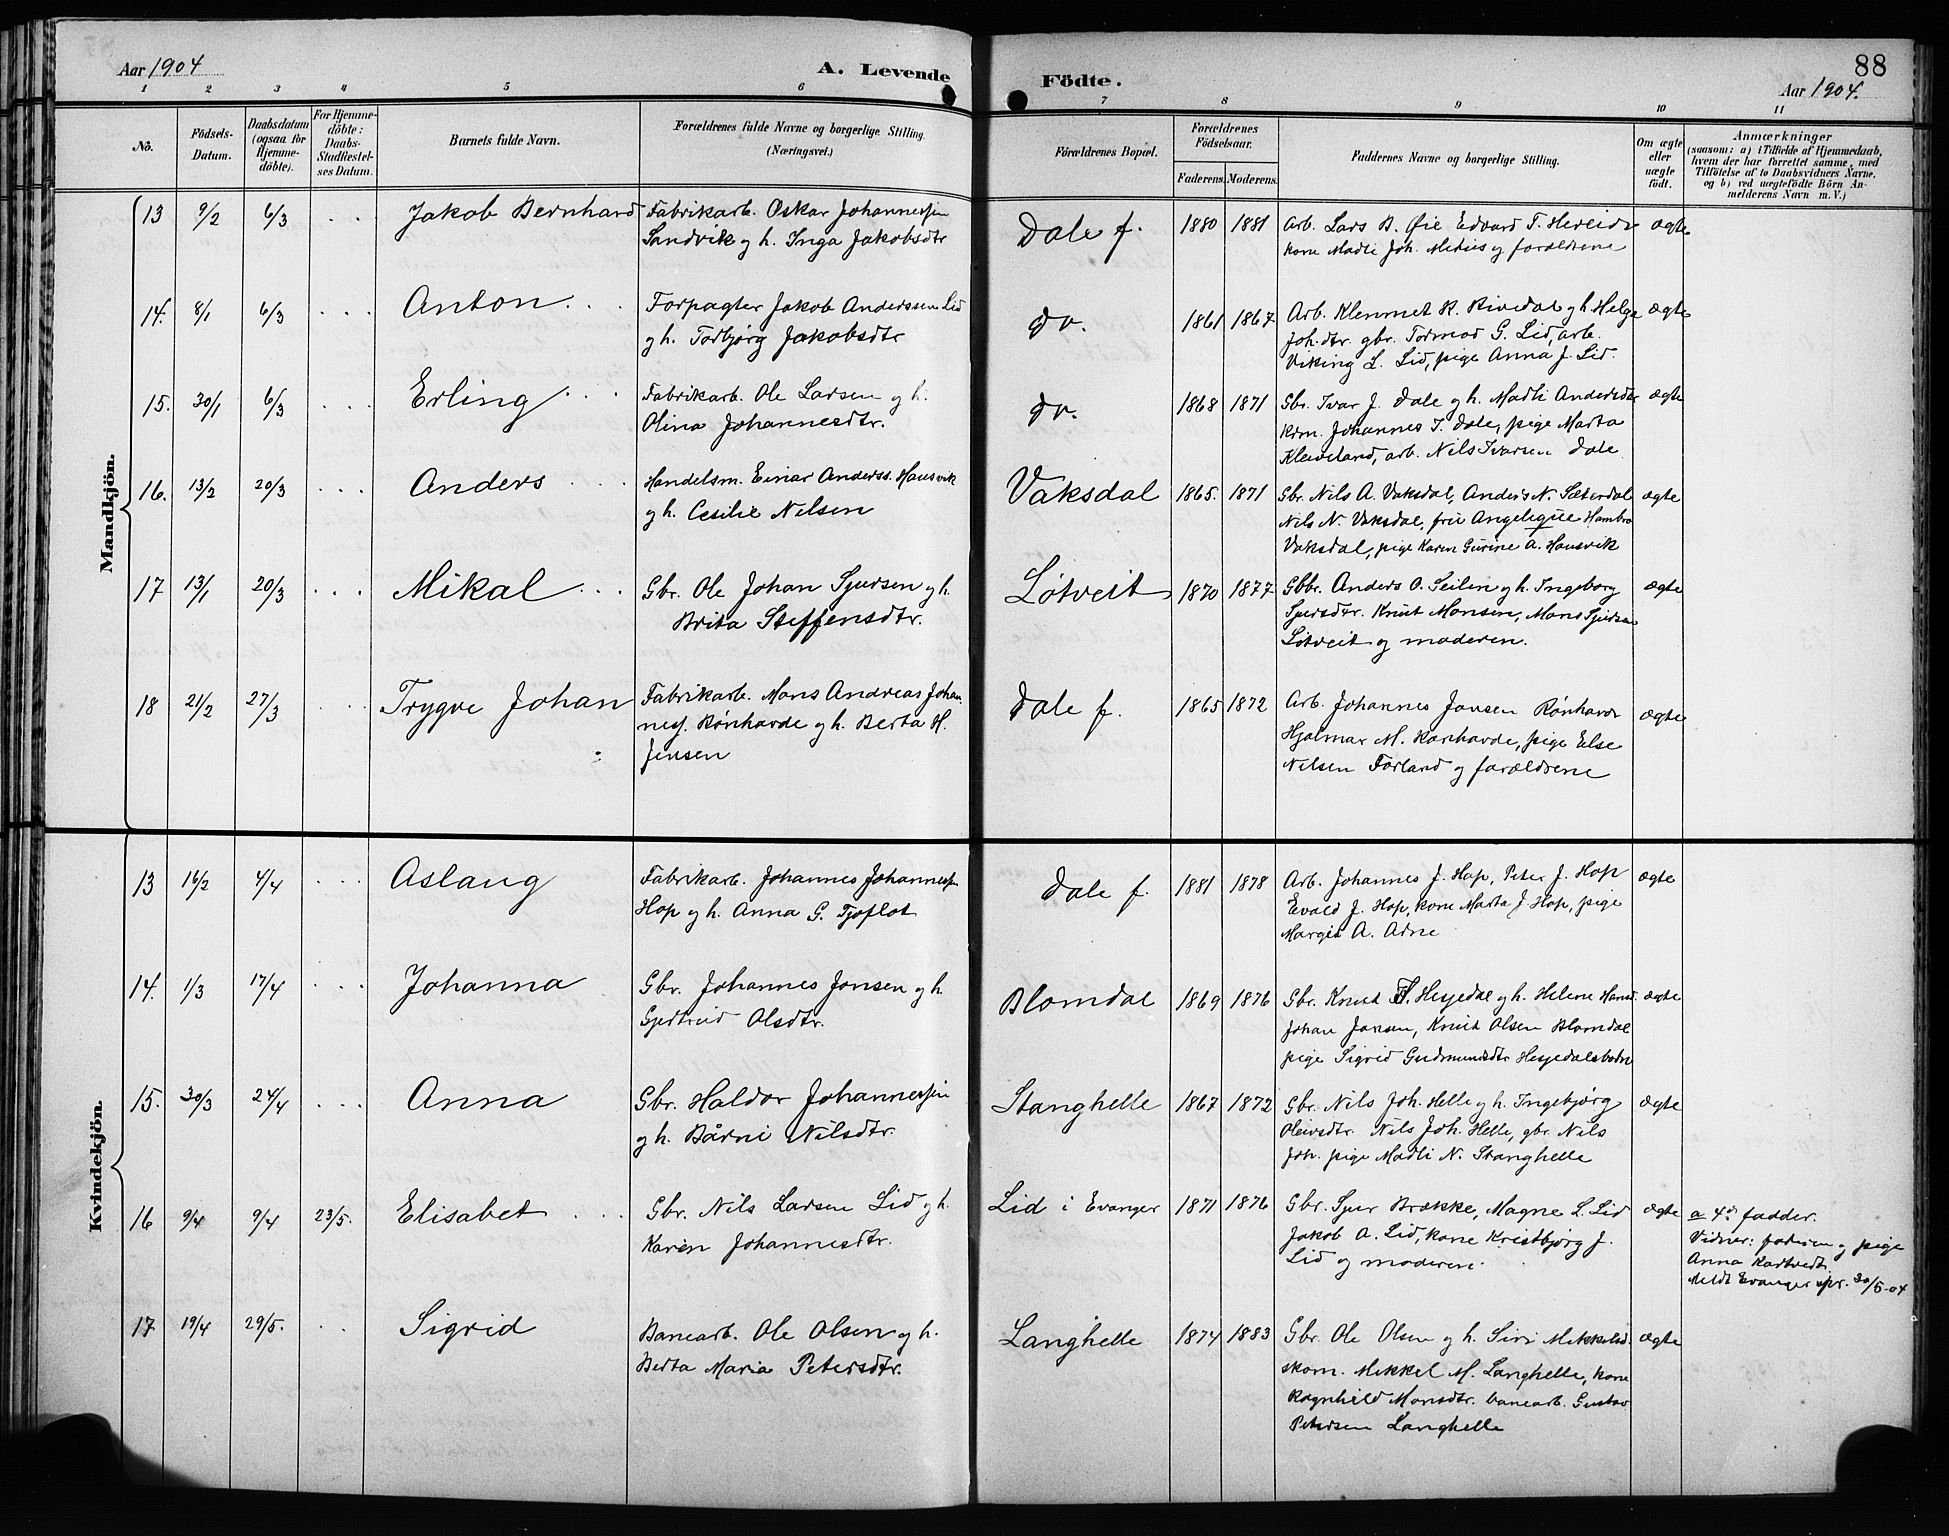 88
Aar 1904
A. Levende Födte.
Aar 1904.
1 2 3 4 5 6 7 8 9 10 11
No.
Födsels-Datum.
Daabsdatum (ogsaa for Hjemme-döbte).
For Hjemme-döbte: Daabs-Stadfæstel-ses Datum.
Barnets fulde Navn.
Forældrenes fulde Navne og borgerlige Stilling. (Næringsvei.)
Forældrenes Bopæl.
Forældrenes Födselsaar.
Faderens. Moderens.
Faddernes Navne og borgerlige Stilling.
Om ægte eller uægte födt.
Anmærkninger
(saasom: a) i Tilfælde af Hjemmedaab,
hvem der har forrettet samme, med
Tilföielse af to Daabsvidners Navne,
og b) ved uægtefödte Börn An-
melderens Navn m.V.)
Mandkjön.
13 9/2 6/3 Jakob Bernhard Fabrikarb. Oskar Johannessen Dale f. 1880 1881 Arb. Lars B. Øie Edvard T. Hereid ægte
Sandvik og h. Inga Jakobsdtr kone Madli Joh. og forældrene
14. 8/1 6/3 Anton Forpagter Jakob Anderssen Lid do. 1861 1867 Arb. Klemmet K. Rivedal og h Helga ægte
og h. Torbjørg Jakobsdtr Joh.dtr. gbr. Tormod G. Lid, arb.
Viking L. Lid, pige Anna J. Lid.
15. 30/1 6/3 Erling Fabrikarb. Ole Larsen og h. do. 1868 1871 Gbr. Ivar J. Dale og h. Madli Andersdtr ægte
Olina Johannesdtr. Johannes I. Dale, pige Marta
Kleiveland, arb. Nils Ivarsen Dale
16. 13/2 20/3 Anders Handelsm. Einar Anderss. Hausvik Vaksdal 1865. 1871 Gbr. Nils A. Vaksdal, Anders N. Sæterdal ægte
og h. Cesilie Nilsen Nils N. Vaksdal, fru Angelique Hambro
Vaksdal, pige Karen Gurine A. Hausvik
17 13/1 20/3 Mikal Gbr. Ole Johan Sjursen og h. Løtveit 1870 1877 Gbr. Anders O. Seilen og h. Ingeborg ægte
Brita Steffensdtr. Sjursdtr. Knut Monsen, Mons Sjursen
Løtveit og moderen.
18 21/2 27/3 Trygve Johan Fabrikarb. Mons Andreas Johan Dale f. 1865 1872 Arb. Johannes Jansen Rønhovde ægte
nes. Rønhovde og h. Berta H. Hjalmar M. Rønhovde, pige Else
Jensen Nilsen Førland og forældrene
Kvindekjön.
13 16/2 4/4 Aslaug Fabrikarb. Johannes Johannessen Dale f 1881 1878 Arb. Johannes J. Hop, Peter J. Hop ægte
Hop og h. Anna G. Tjoflot Evald J. Hop, kone Marta J. Hop, pige
Margit A. Arne
14. 1/3 17/4 Johanna Gbr. Johannes Jonsen og h. Blomdal 1869 1876 Gbr. Knut Hesjedal og h. Helene Hansd. ægte
Gjertrud Olsdtr. Johan Jonsen, Knut Olsen Blomdal
pige Sigrid Gudmundsdtr Hesjedalsbotn
15. 30/3 24/4 Anna Gbr. Haldor Johannessen Stanghelle 1867 1872 Gbr. Nils Joh. Helle og h. Ingebjørg ægte
og h. Bårni Nilsdtr. Oleivsdtr. Nils Joh. Helle, gbr. Nils
Joh. pige Madli N. Stanghelle
16 9/4 9/4 23/5. Elisabet Gbr. Nils Larsen Lid og h. Lid i Evanger 1871 1876 Gbr. Sjur Brække, Magne L. Lid ægte a 4d fadder.
Karen Johannesdtr. Jakob A. Lid, kone Kristbjørg J. Vidner: faderen og pige
Lid og moderen. Anna
Meldt Evanger spr. 30/5-04
17 19/4 29/5. Sigrid Banearb. Ole Olsen og h. Langhelle 1874 1883 Gbr. Ole Olsen og h. Siri Mikkelsd. ægte
Berta Maria Petersdtr. skom. Mikkel M. Langhelle, kone
Ragnhild Monsdtr. banearb. Gustav
Petersen Langhelle